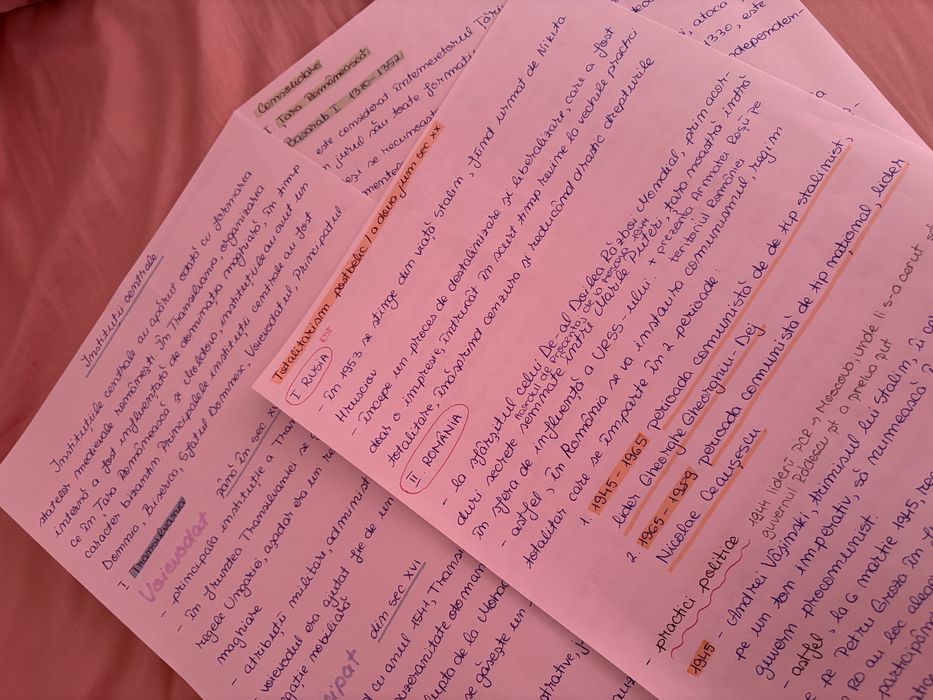 Totalitarism postbelic / a doua jum sec XX
I RUSIA EST
- în 1953 se stinge din viață Stalin, fiind urmat de Nikita
Hrusciov
- începe un proces de destalinizare și liberalizare, care a fost
doar o impresie, întrucât în scurt timp revine la vechile practici
totalitare, înăsprind cenzura și reducând drastic drepturile
II ROMÂNIA
- la sfârșitul celui De-al Doilea Război Mondial, prin acor-
duri secrete semnate între Marile Puteri, țara noastră intră
în sfera de influență a URSS-ului + prezența Armatei Roșii pe
teritoriul României
- astfel, în România se va instaura comunismul, regim
totalitar care se împarte în 2 perioade:
1. 1945-1965 perioada comunistă de tip stalinist,
lider Gheorghe Gheorghiu-Dej
2. 1965-1989 perioada comunistă de tip național, lider
Nicolae Ceaușescu
- practici politice
1944 liderii PCR → Moscova, unde li s-a cerut să
guvernul Rădescu pt a prelua put
1945 - Andrei Vâșinski, trimisul lui Stalin, îi
pe un ton imperativ, să numească
guvern procomunist.
- astfel, la 6 martie 1945, re
pe Petru Groza în f
au loc alege
participân
Instituții centrale
Instituțiile centrale au apărut odată cu formarea
statelor medievale românești. În Transilvania, organizarea
internă a fost influențată de dominația maghiară în timp
ce în Țara Românească și Moldova, instituțiile au avut un
caracter bizantin. Principalele instituții centrale au fost
Domnia, Biserica, Sfatul Domnesc, Voievodatul, Principatul
I Transilvania
Voievodat până în sec XV
- principala instituție a Tran
- în fruntea Transilvaniei se
regele Ungariei, așadar era un re
maghiare
- atribuții militare, admini
- voievodul era ajutat și de un
din sec XVI
cu anul 1541, Trans
suzeranitate otomană
lupta de la Moha
se găsește un
Consolidare
I. Țara Românească
Basarab I 1310-1352
este considerat întemeietorul Țării
în jurul său toate formați
și se recunoaș
ataca
1330, este
independen